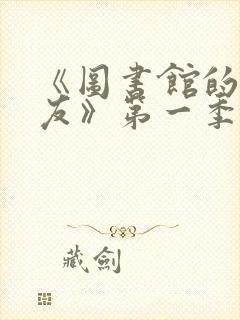 《圖書館的
友》第一季
藏劍